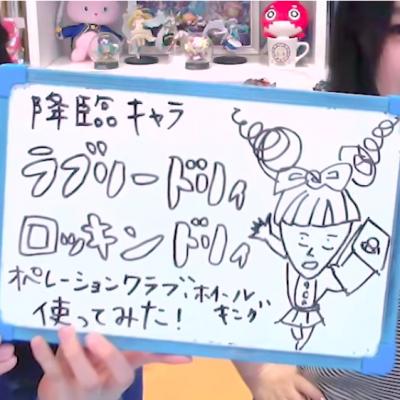 降臨キャラ
ラブリードリィ
ロッキンドリィ
オペレーションクラブ、ホイールキング
使ってみた!